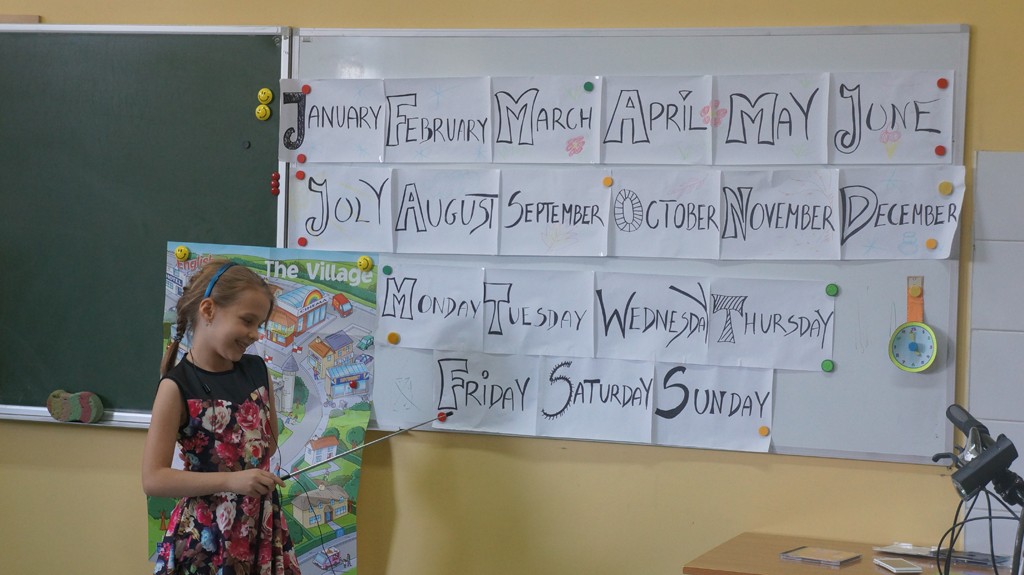 JANUARY FEBRUARY MARCH APRIL MAY JUNE
JULY AUGUST SEPTEMBER OCTOBER NOVEMBER DECEMBER
English The Village
MONDAY TUESDAY WEDNESDAY THURSDAY
FRIDAY SATURDAY SUNDAY